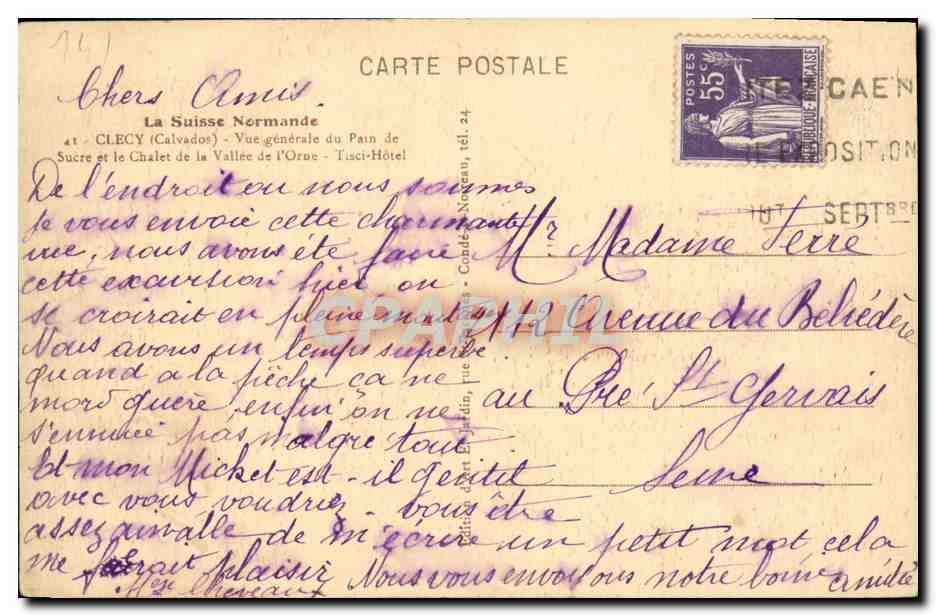 14)
CARTE POSTALE
Chers Amis.
La Suisse Normande
41 - CLECY (Calvados) - Vue générale du Pain de
Sucre et le Chalet de la Vallée de l'Orne - Tisci-Hôtel
De l'endroit ou nous sommes
je vous envoie cette charmante
vue, nous avons été faire
cette excursion hier on
se croirait en pleine montagne
Nous avons un temps superbe
quand a la pêche ça ne
mord guère, enfin on ne
s'ennuie pas malgré tout
Et mon Micket est-il gentil
avec vous voudriez-vous être
assez aimable de m'écrire un petit mot cela
me ferait plaisir Nous vous envoyons notre bonne amitié
Édition d'Art Jardin, rue - Condé-Noireau, tél. 24
POSTES
55c
REPUBLIQUE FRANÇAISE
CAEN
EXPOSITION
SEPTBRE
Mr. Madame Ferré
112 Avenue du Belvédère
au Pré St Gervais
Seine
CPAPHIL